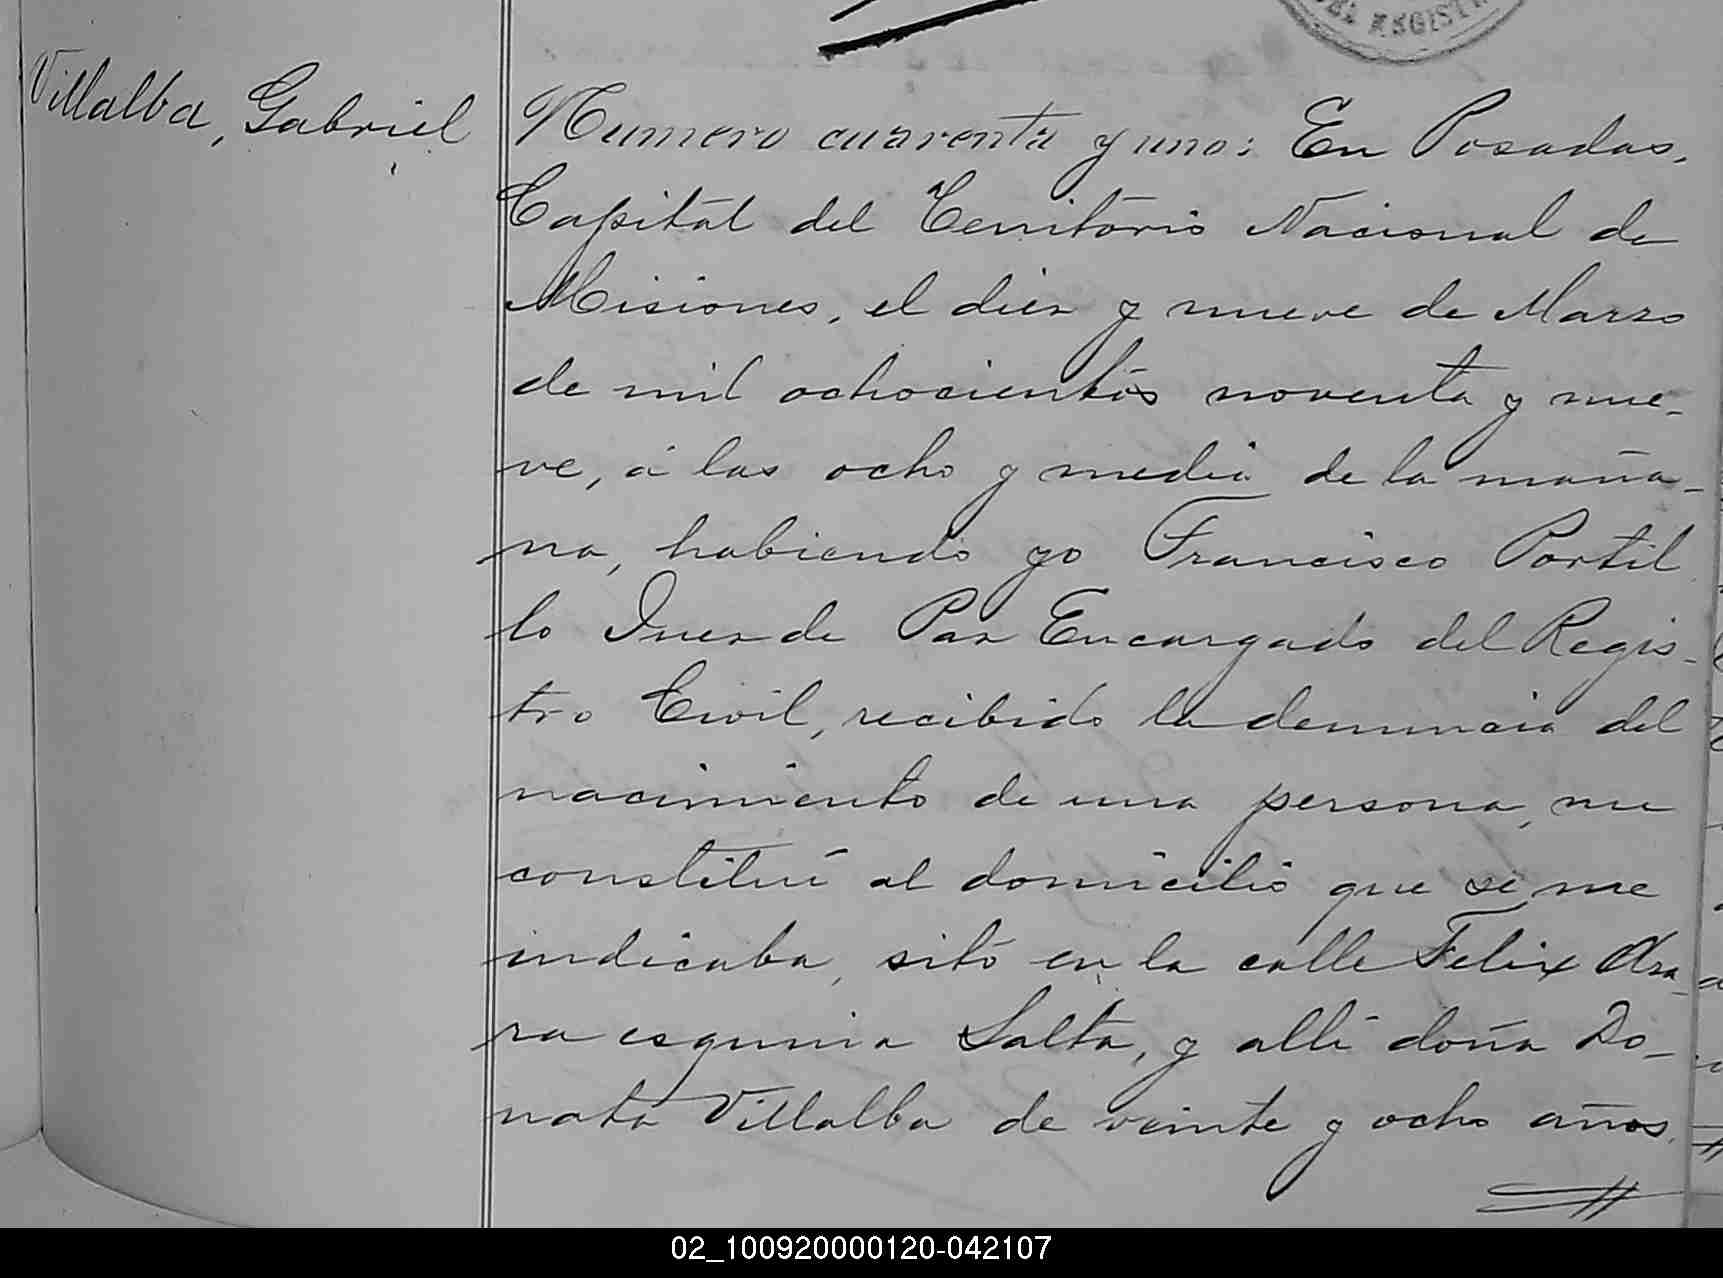 DEL REGIST
Villalba, Gabriel
Numero cuarenta y uno: En Posadas,
Capital del Territorio Nacional de
Misiones, el diez y nueve de Marzo
de mil ochocientos noventa y nue-
ve, á las ocho y media de la maña-
na, habiendo yo Francisco Portil
lo Juez de Paz Encargado del Regis-
tro Civil, recibido la denuncia del
nacimiento de una persona, me
constituí al domicilio que se me
indicaba, sito en la calle Felix Aza-
ra esquina Salta, y allí doña Do-
nata Villalba de veinte y ocho años,
02_100920000120-042107